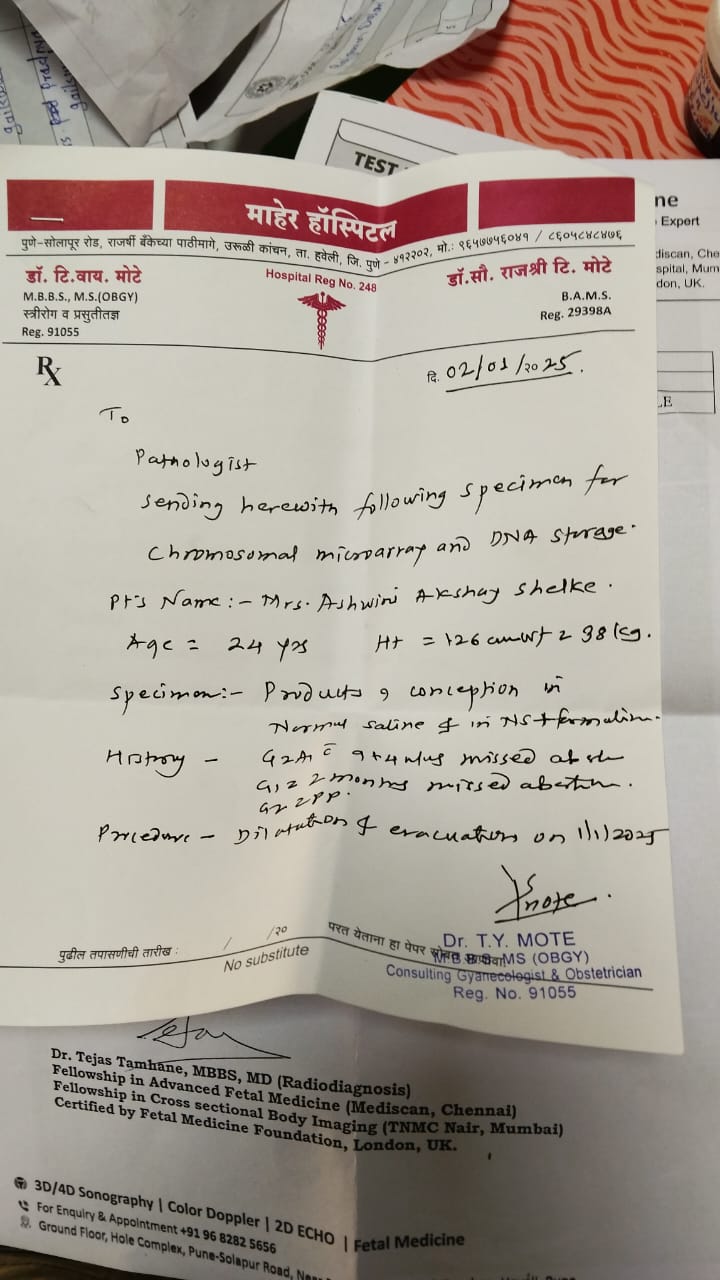 TEST
माहेर हॉस्पिटल
पुणे-सोलापूर रोड, राजर्षी बँकेच्या पाठीमागे, उरूळी कांचन, ता. हवेली, जि. पुणे - ४१२२०२, मो.: ९६५७७५६०४१ / ८६०५८४८४७६
डॉ. टि.वाय. मोटे
M.B.B.S., M.S.(OBGY)
स्त्रीरोग व प्रसुतीतज्ञ
Reg. 91055
Hospital Reg No. 248
डॉ.सौ. राजश्री टि. मोटे
B.A.M.S.
Reg. 29398A
ne
Expert
discan, Che
spital, Mum
don, UK.
Rx
दि. 02/01/२०25.
To
Pathologist
Sending herewith following specimen for
Chromosomal microarray and DNA storage.
Pt's Name:- Mrs. Ashwini Akshay Shelke.
Age = 24 yrs Ht = 126 cm wt = 38 kg.
Specimen:- Products of conception in
Normal saline & in NS + formalin.
History - G2A1 c̄ 9+4 wks missed
G1 = 2 months missed abortion.
G2 = PP.
Procedure - Dilatation & evacuation on 1/1/2025
पुढील तपासणीची तारीख : / /२०
No substitute
परत येताना हा पेपर
Dr. T.Y. MOTE
M B B S, MS (OBGY)
Consulting Gyanecologist & Obstetrician
Reg. No. 91055
Dr. Tejas Tamhane, MBBS, MD (Radiodiagnosis)
Fellowship in Advanced Fetal Medicine (Mediscan, Chennai)
Fellowship in Cross sectional Body Imaging (TNMC Nair, Mumbai)
Certified by Fetal Medicine Foundation, London, UK.
3D/4D Sonography | Color Doppler | 2D ECHO | Fetal Medicine
For Enquiry & Appointment +91 96 8282 5656
Ground Floor, Hole Complex, Pune-Solapur Road,